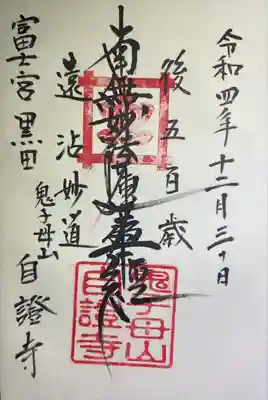 令和四年十二月三十日
後五百歳
南無妙法蓮華経
遠沾妙道
鬼子母山
自證寺
富士宮黒田
鬼子母山
自證寺